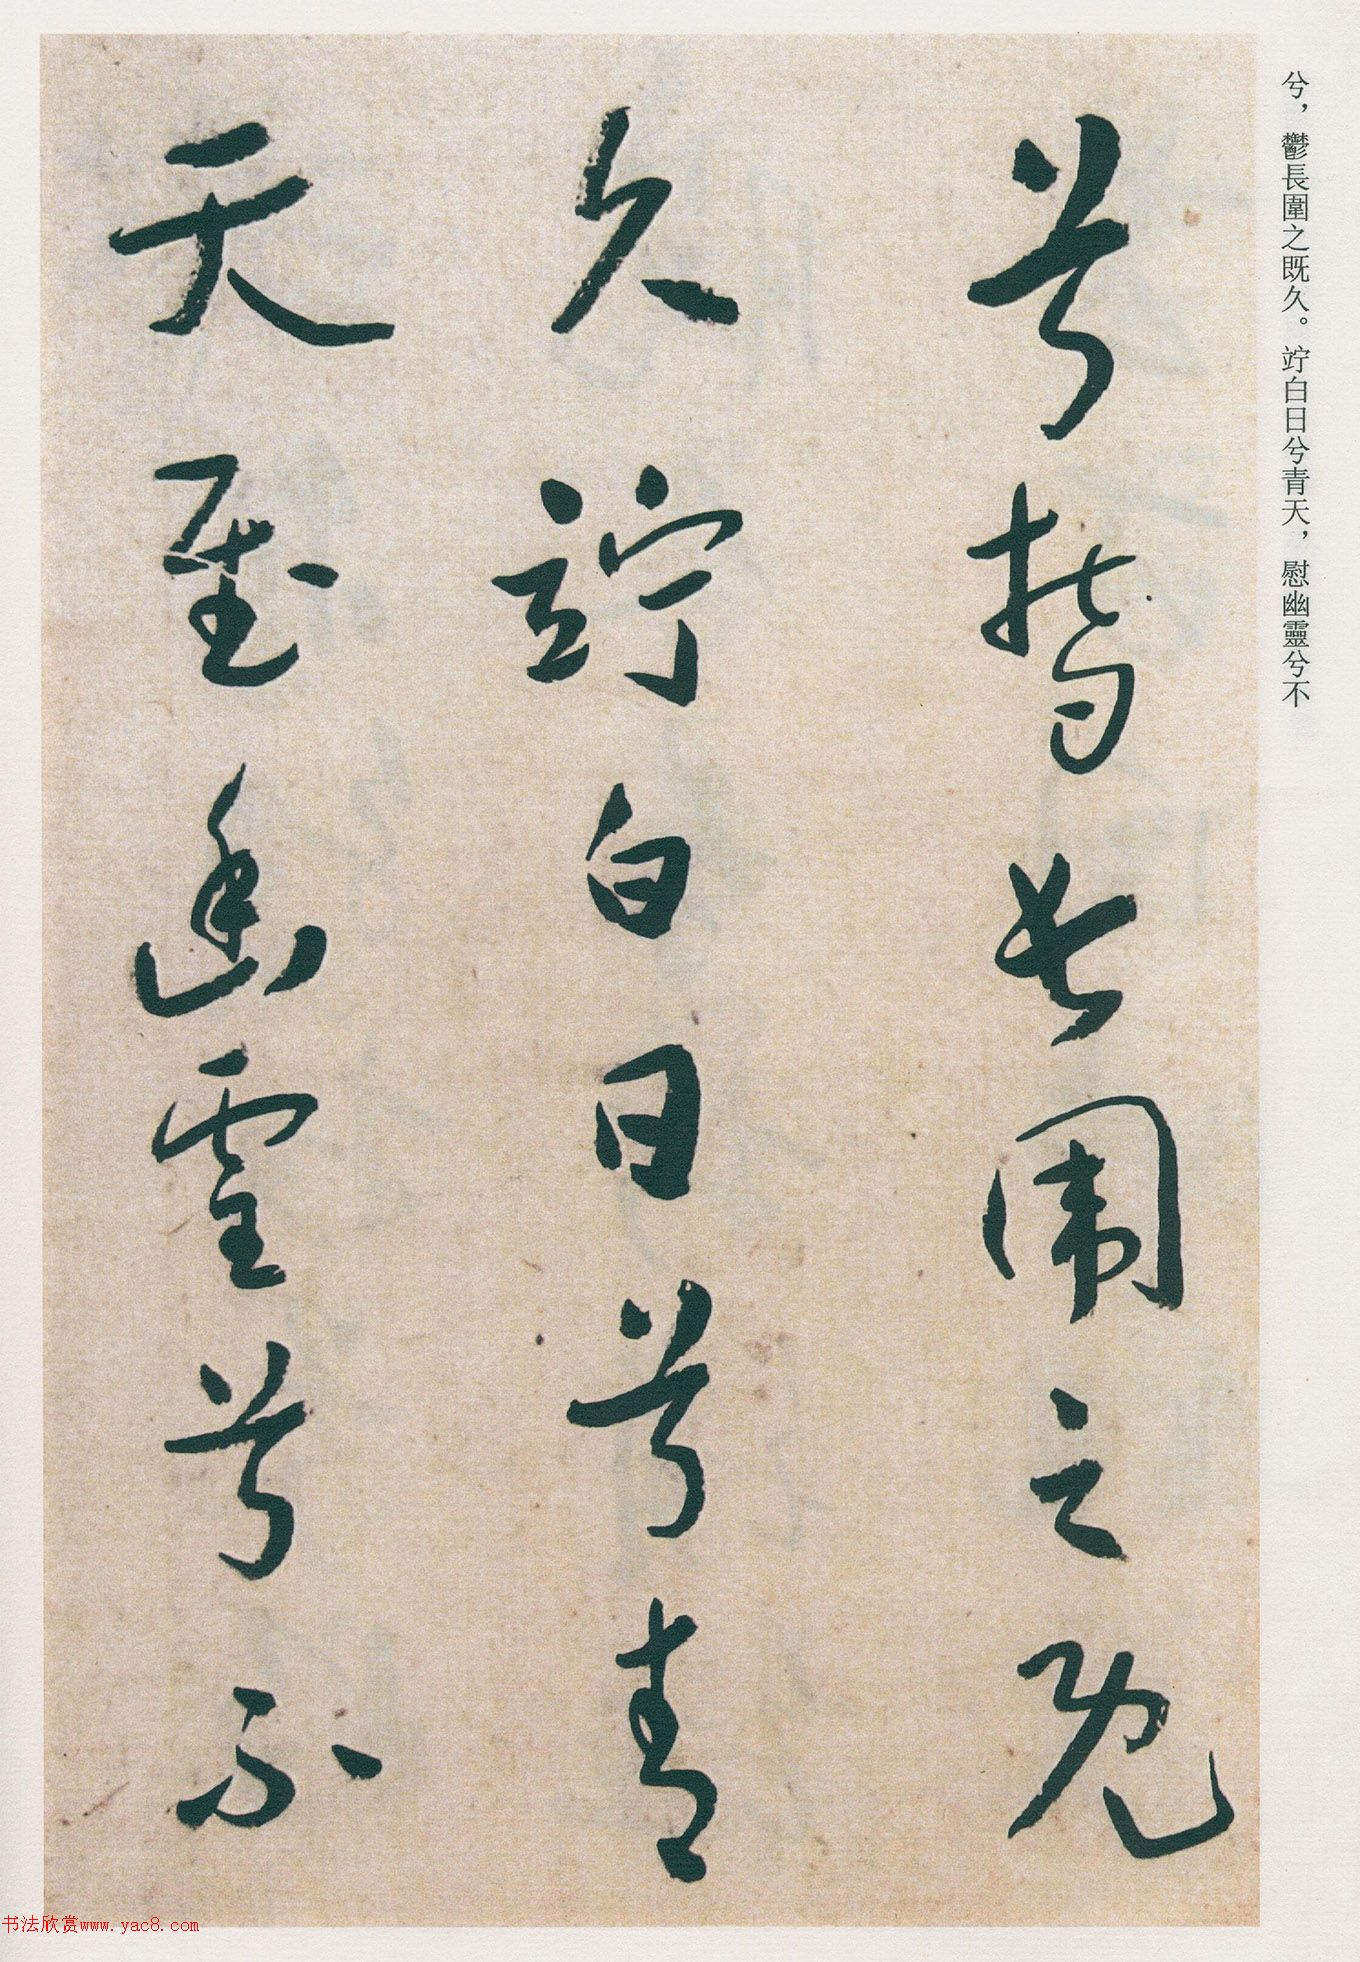 兮，鬱長圍之既久。竚白日兮青天，慰幽靈兮不
兮鬱長圍之既
久竚白日兮青
天慰幽靈兮不
书法欣赏www.yac8.com